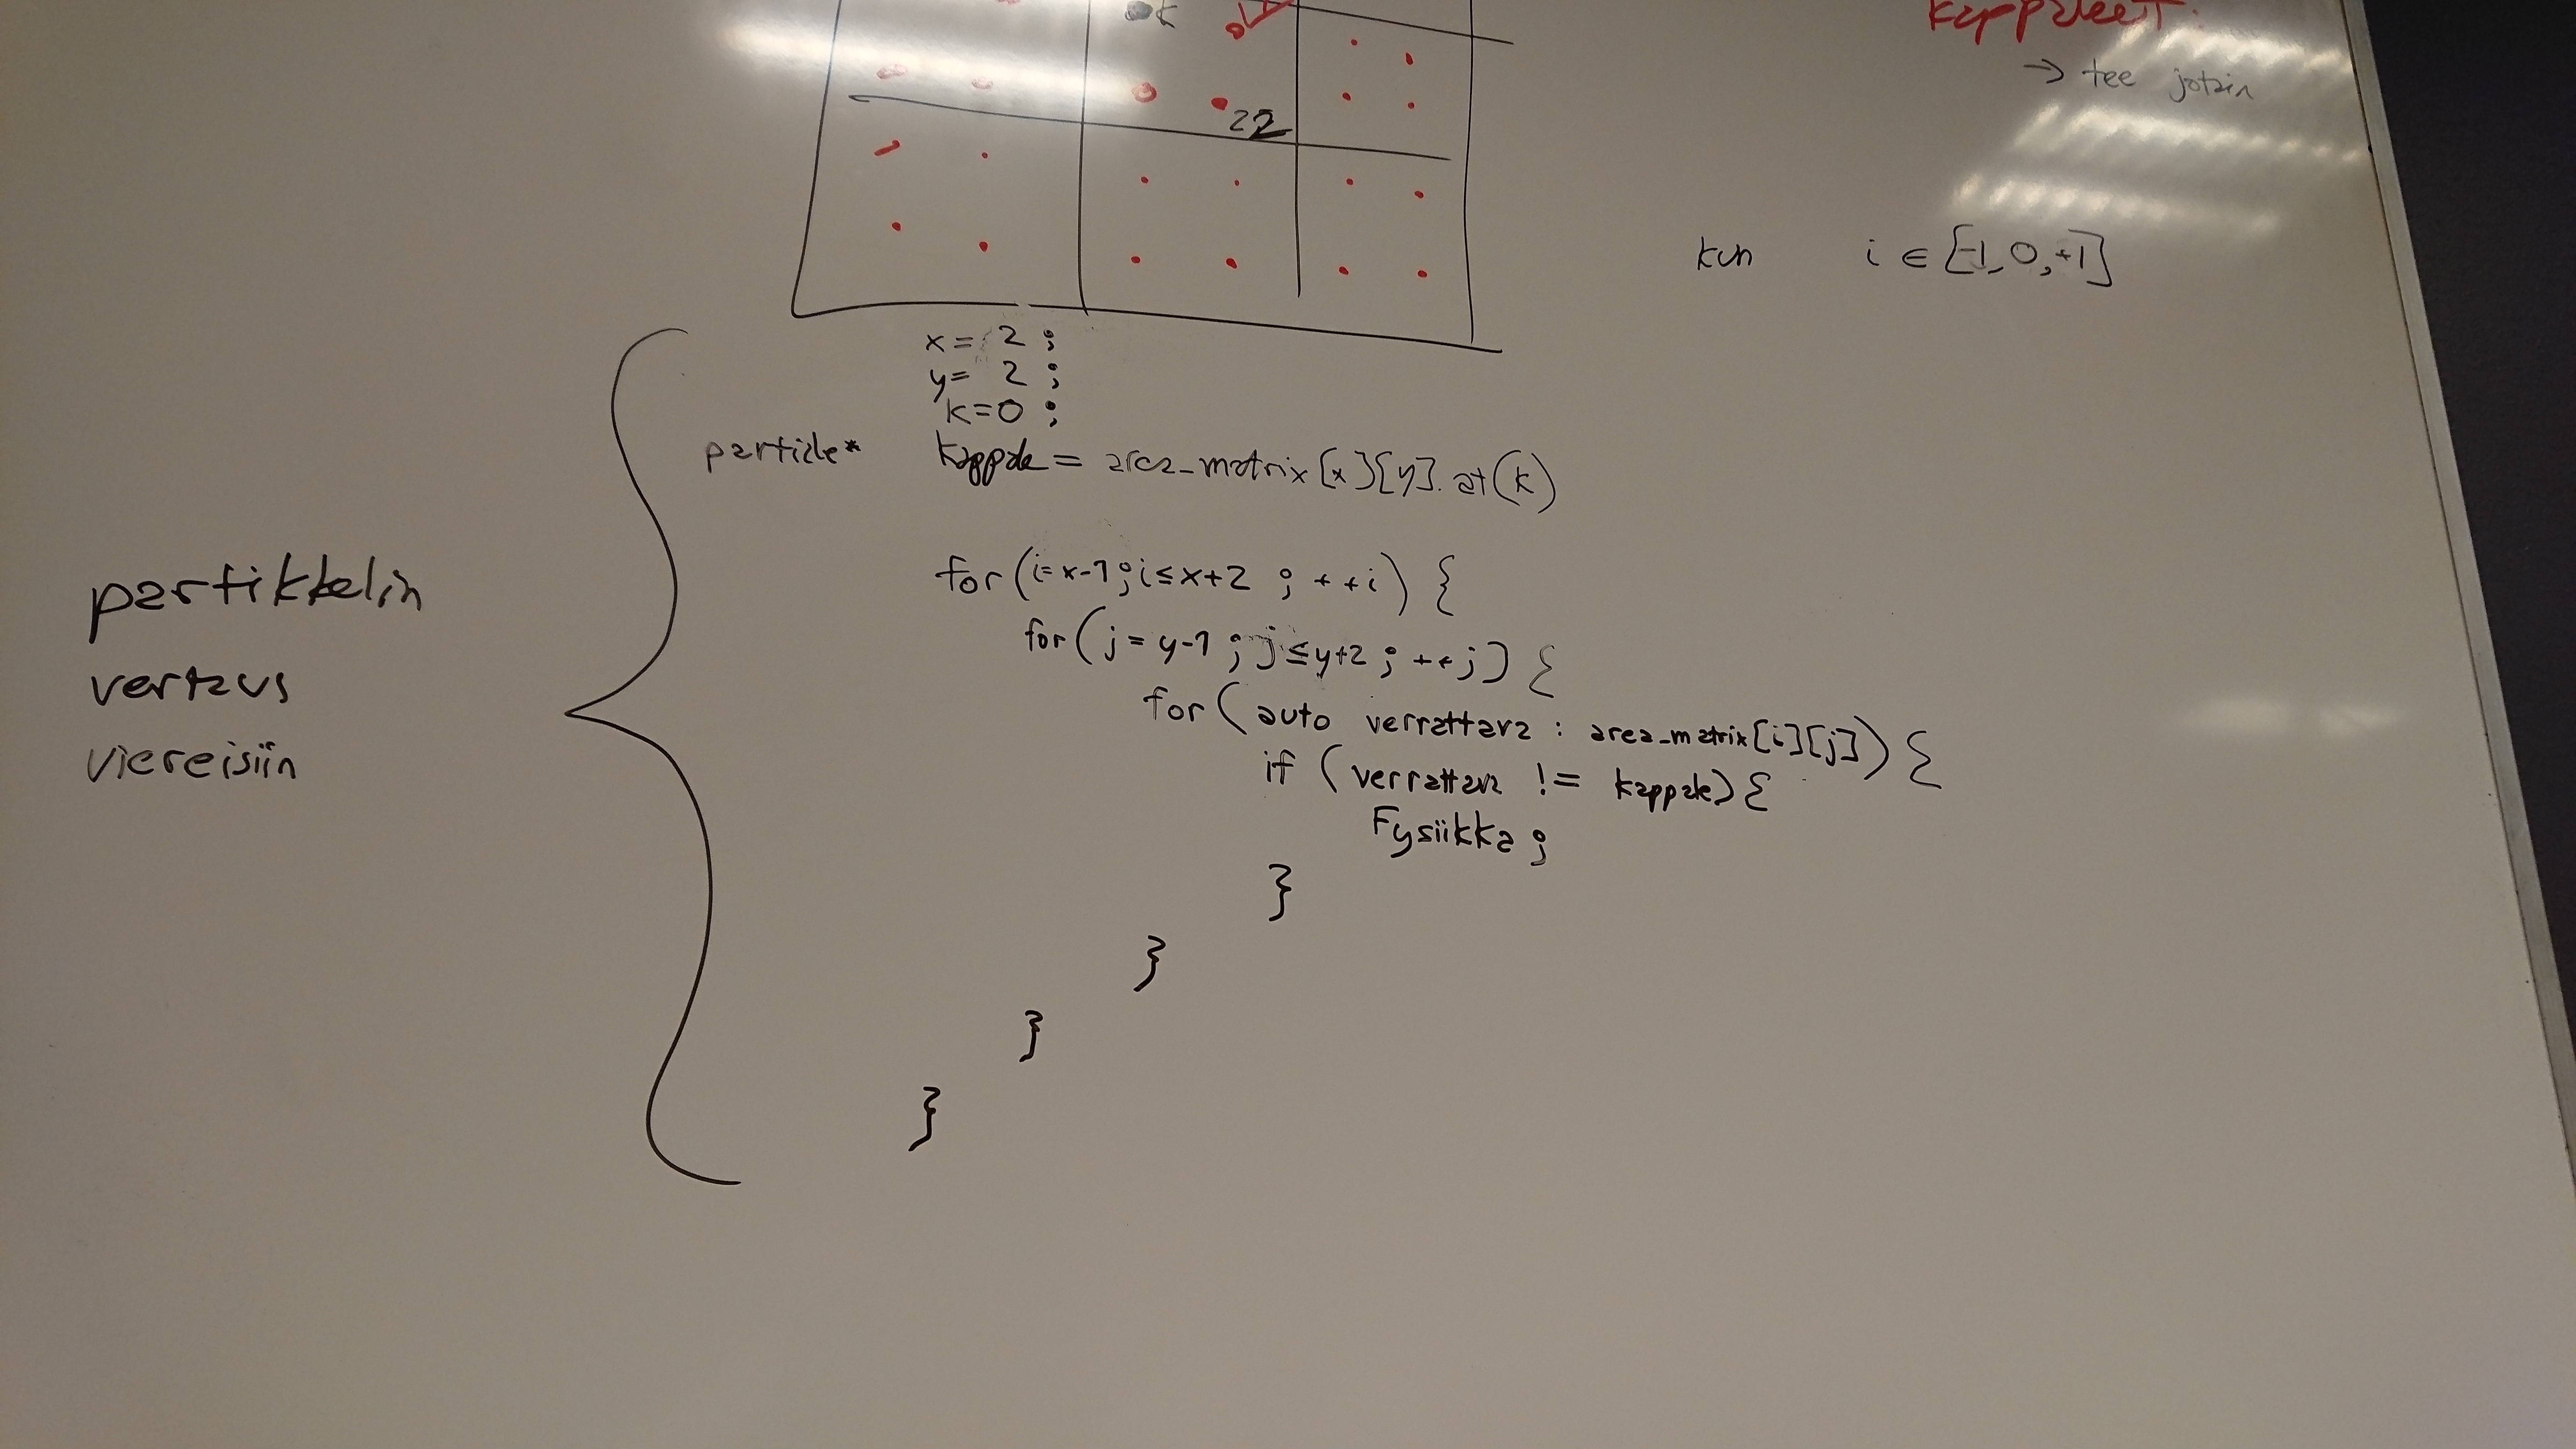 kappaleet:
→ tee jotain
22
kun i ∈ [-1, 0, +1]
x = 2 ;
y = 2 ;
k = 0 ;
particle* kappale = area_matrix [x][y]. at(k)
for (i = x-1 ; i ≤ x+2 ; ++i) {
for ( j = y-1 ; j ≤ y+2 ; ++j) {
for ( auto verrattava : area_matrix[i][j]) {
if ( verrattava != kappale) {
Fysiikka ;
}
}
}
}
partikkelin
vertaus
viereisiin